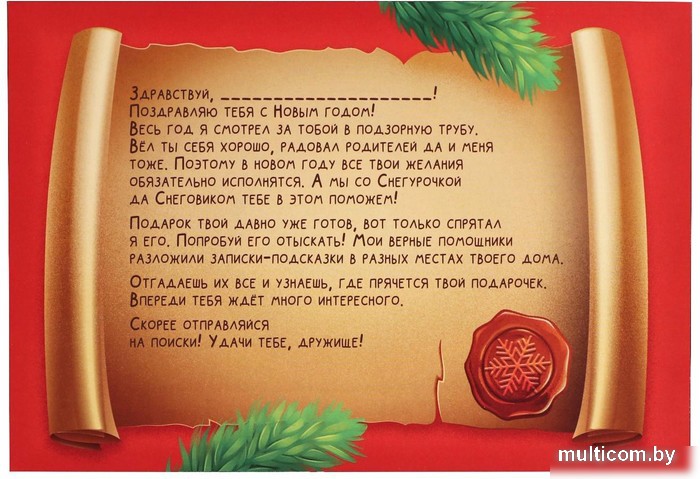 Здравствуй, _______________________!
Поздравляю тебя с Новым годом!
Весь год я смотрел за тобой в подзорную трубу.
Вёл ты себя хорошо, радовал родителей да и меня
тоже. Поэтому в новом году все твои желания
обязательно исполнятся. А мы со Снегурочкой
да Снеговиком тебе в этом поможем!
Подарок твой давно уже готов, вот только спрятал
я его. Попробуй его отыскать! Мои верные помощники
разложили записки-подсказки в разных местах твоего дома.
Отгадаешь их все и узнаешь, где прячется твой подарочек.
Впереди тебя ждёт много интересного.
Скорее отправляйся
на поиски! Удачи тебе, дружище!
multicom.by